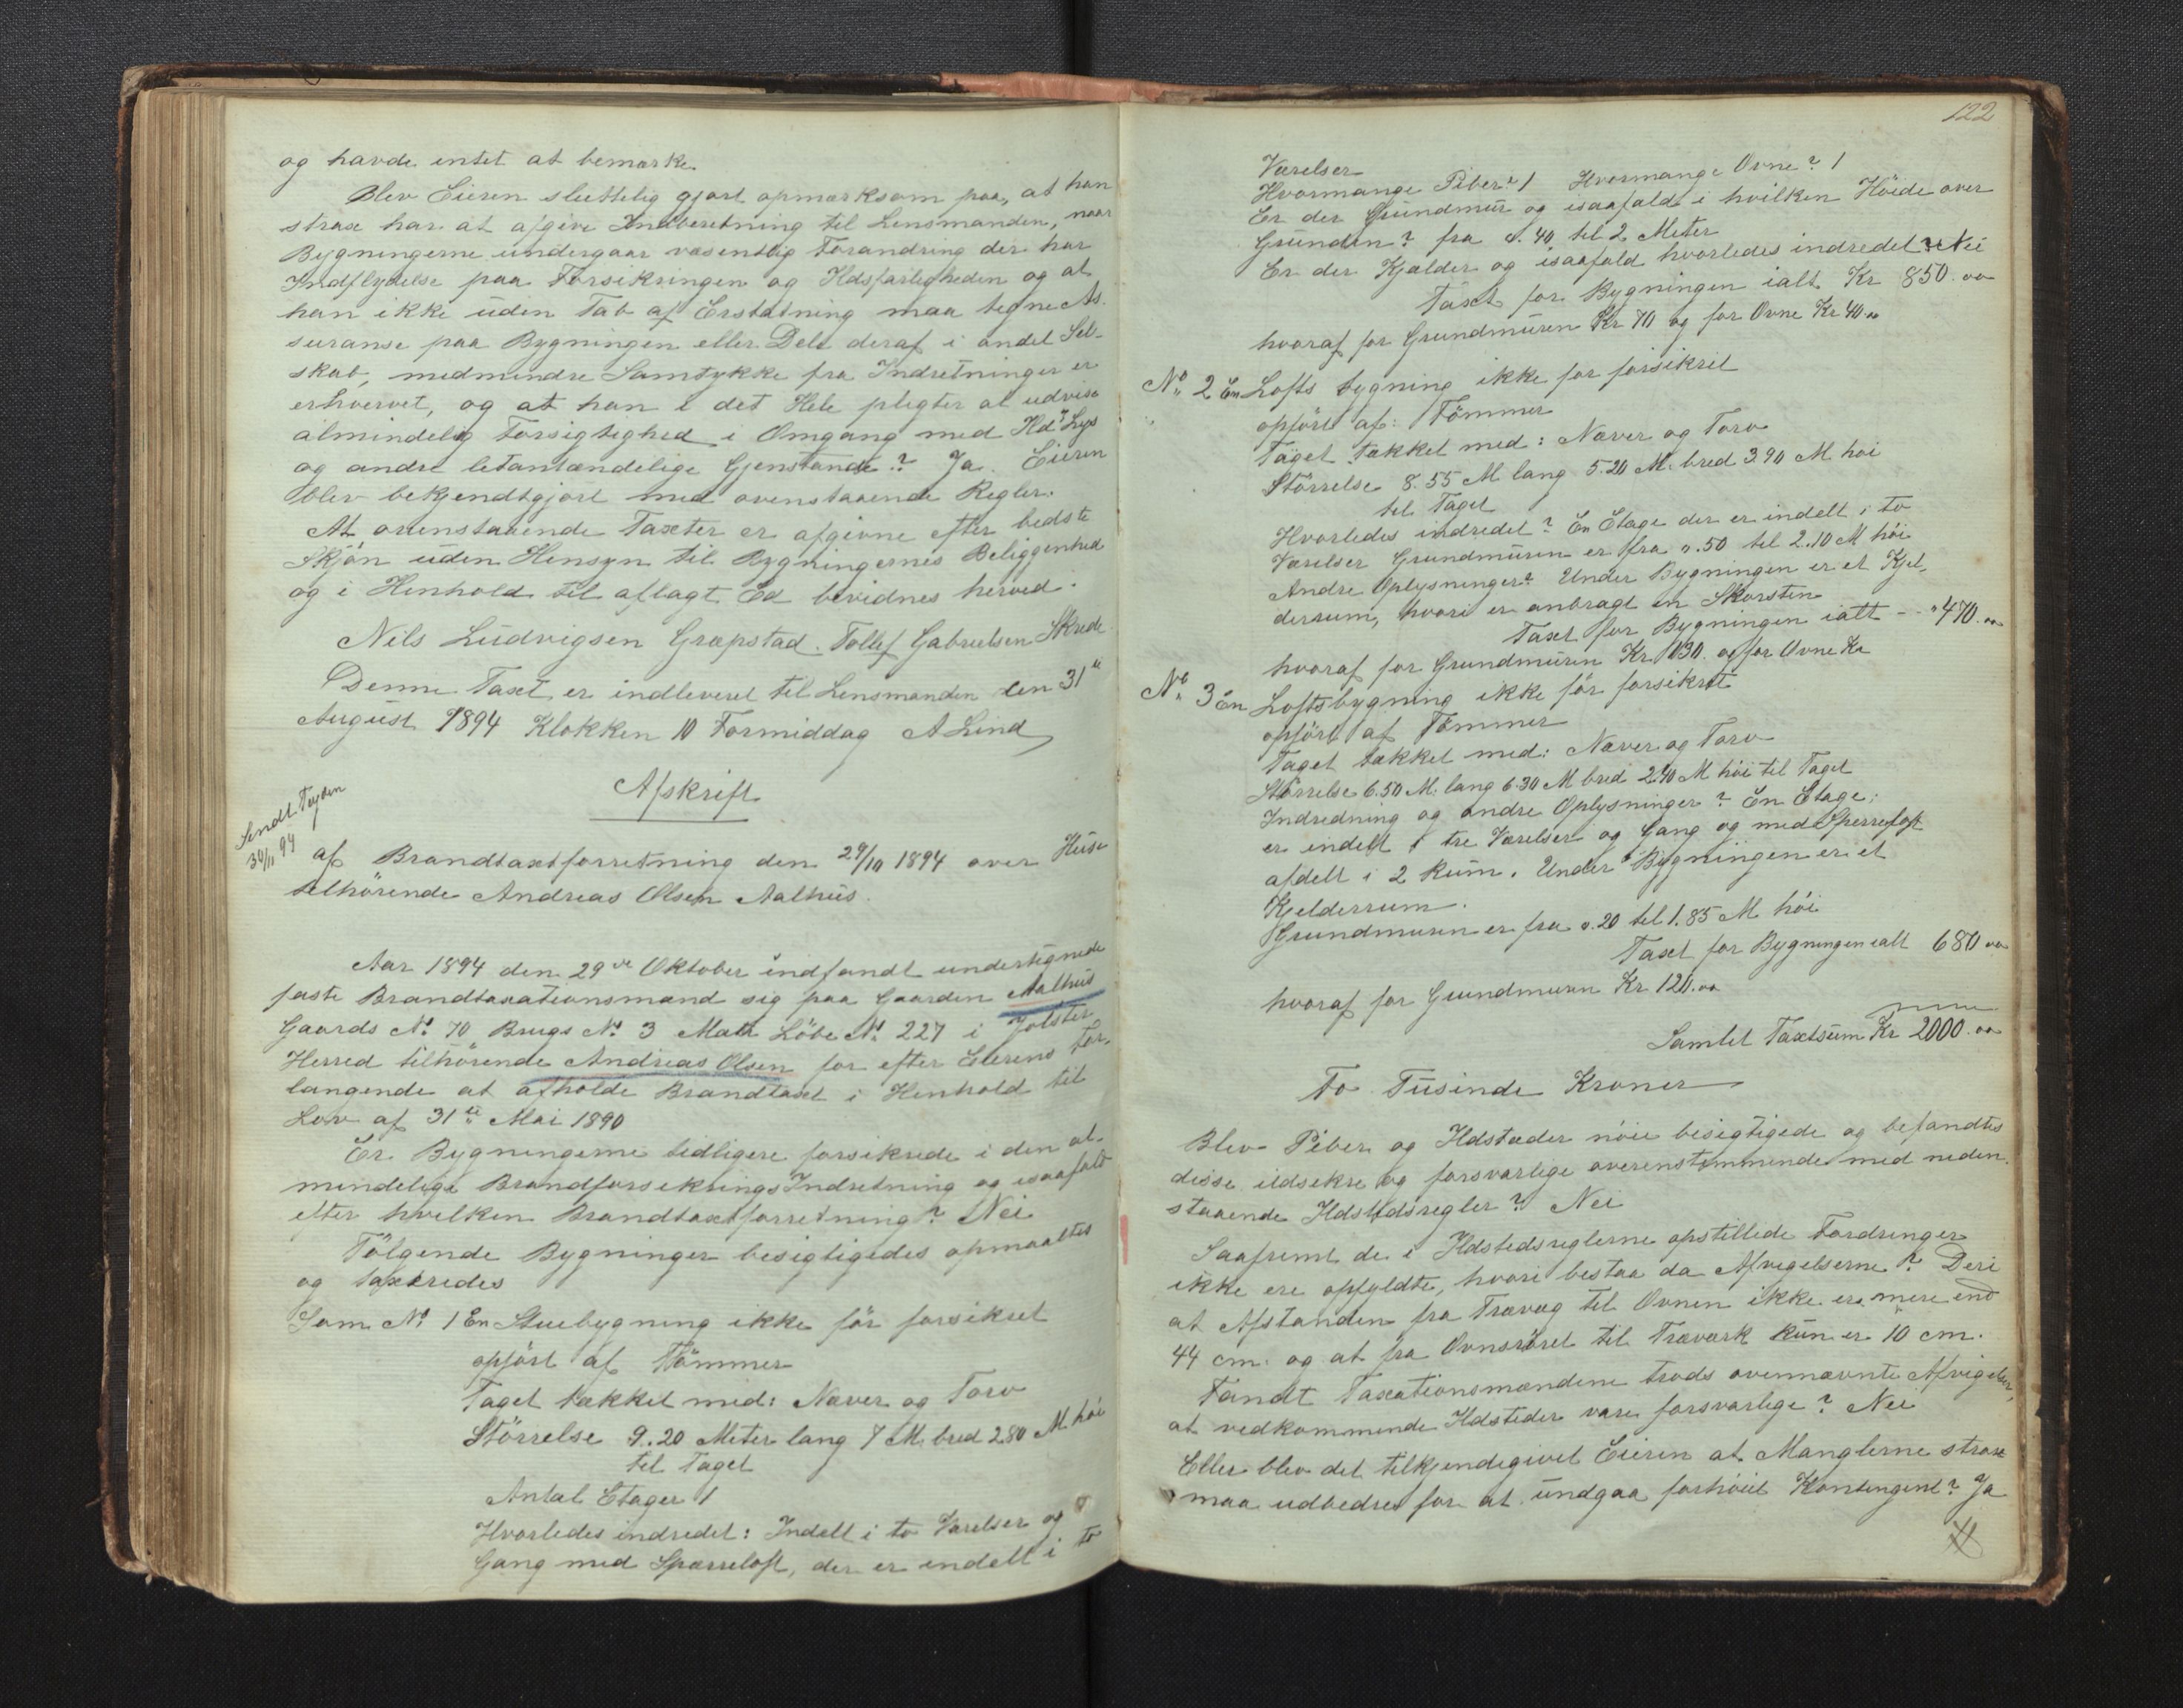 og havde intet at bemærke
Blev Eieren sluttelig gjort opmærksom paa, at han
strax har at afgive Indberetning til Lensmanden, naar
Bygningerne undergaar væsentlig Forandring der har
Indflydelse paa Forsikringen og Ildsfarligheden og at
han ikke uden Tab af Erstatning maa tegne As-
suranse paa Bygningen eller Dele deraf i andet Sel-
skab, medmindre Samtykke fra Indretningen er
erhvervet, og at han i det Hele pligter at udvise
almindelig Forsigtighed i Omgang med Ild Lys
og andre letantændelige Gjenstande? Ja. Eieren
blev bekjendtgjort med ovenstaaende Regler.
At ovenstaaende Taxter er afgivne efter bedste
Skjön uden Hensyn til Bygningernes Beliggenhed
og i Henhold til aflagt Ed bevidnes herved.
Nils Ludvigsen Grøpstad. Tollef Gabrielsen Skrede
Denne Taxt er indleveret til Lensmanden den 31te
August 1894 Klokken 10 Formiddag A Lind
Afskrift
Sendt
30/11 94
af Brandtaxtforretning den 29/10 1894 over Huse
tilhörende Andreas Olsen Aalhus.
Aar 1894 den 29de Oktober indfandt undertegnede
faste Brandtaxationsmænd sig paa Gaarden Aalhus
Gaards No 70 Brugs No 3 Matr Löbe No 227 i Jölster
Herred tilhörende Andreas Olsen for efter Eierens For-
langende at afholde Brandtaxt i Henhold til
Lov af 31te Mai 1890
Er Bygningerne tidligere forsikrede i den al-
mindelige Brandforsikrings Indretning og isaafald
efter hvilken Brandtaxtforretning? Nei
Fölgende Bygninger besigtigedes opmaaltes
og taxeredes
Som No 1 En Stuebygning ikke för forsikret
opfört af Tömmer
Taget tækket med: Næver og Torv
Störrelse 9.20 Meter lang 7 M. bred 2.80 M höi
til Taget
Antal Etager 1
Hvorledes indredet: Indelt i to Værelser og
Gang med Spærreloft, der er indelt i to
122
Værelser
Hvormange Piber? 1 Hvormange Ovne? 1
Er der Grundmur og isaafald i hvilken Höide over
Grunden? fra 0.40 til 2 Meter
Er der Kjælder og isaafald hvorledes indredet? Nei
Taxt for Bygningen ialt Kr 850.00
hvoraf for Grundmuren Kr 70 og for Ovne Kr 40.00
No 2 En Lofts bygning ikke för forsikret
opfört af: Tömmer
Taget tækket med: Næver og Torv
Störrelse 8.55 M lang 5.20 M. bred 3.90 M. höi
til Taget
Hvorledes indredet? En Etage der er indelt i to
Værelser Grundmuren er fra 0.50 til 2.10 M höi
Andre Oplysninger? Under Bygningen er et Kjel-
derrum, hvori er anbragt en Skorsten
Taxt for Bygningen ialt - - " 470.00
hvoraf for Grundmuren Kr. 130. og for Ovne Kr
No 3 En Loftsbygning ikke för forsikret
opfört af Tömmer
Taget tækket med: Næver og Torv
Störrelse 6.50 M. lang 6.30 M bred 2.40 M höi til Taget
Indredning og andre Oplysninger? En Etage;
er indelt i tre Værelser og Gang og med Sperreloft
afdelt i 2 Rum. Under Bygningen er et
Kjelderrum.
Grundmuren er fra 0.20 til 1.85 M höi
Taxt for Bygningen ialt 680 00
hvoraf for Grundmuren Kr 120.00
Samlet Taxtsum Kr 2000.00
To Tusinde Kroner
Blev Piber og Ildsteder nöie besigtigede og befandtes
disse ildsikre og forsvarlige overenstemmende med neden-
staaende Ildstedsregler? Nei
Saafremt de i Ildstedsreglerne opstillede Fordringer
ikke ere opfyldte, hvori bestaa da Afvigelserne? Deri
at Afstanden fra Trævæg til Ovnen ikke er mere end
44 cm. og at fra Ovnsröret til Træværk kun er 10 cm.
Fandt Taxationsmændene trods ovennævnte Afvigelser,
at vedkommende Ildsteder vare forsvarlige? Nei
Eller blev det tilkjendegivet Eieren at Manglerne strax
maa udbedres for at undgaa forhöiet Kontingent? Ja